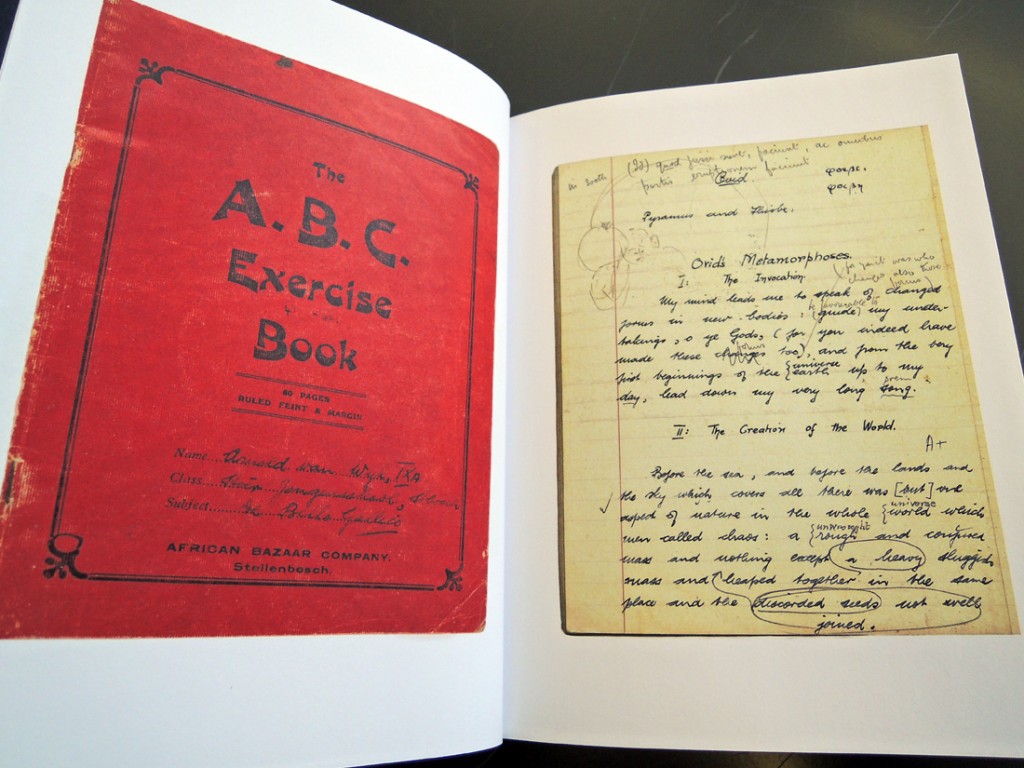 The
A. B. C.
Exercise
Book
80 PAGES
RULED FEINT & MARGIN
Name....
Class....
Subject....
AFRICAN BAZAAR COMPANY.
Stellenbosch.
Ovid.
Pyramus and Thisbe.
Ovid's Metamorphoses.
I: The Invocation.
for you it was who
changes also these
forms
My mind leads me to speak of changed
favourable to
forms in new bodies: (guide) my under-
takings, o ye Gods, (for you indeed have
forms
made these changes too), and from the very
universe
first beginnings of the {earth up to my
poem
day, lead down my very long song.
II: The Creation of the World.
A+
Before the sea, and before the lands and
the sky which covers all there was [but] one
universe
aspect of nature in the whole {world which
unwrought
men called chaos: a {rough and confused
mass and nothing except a heavy sluggish
mass and heaped together in the same
place and the discorded seeds not well
joined.